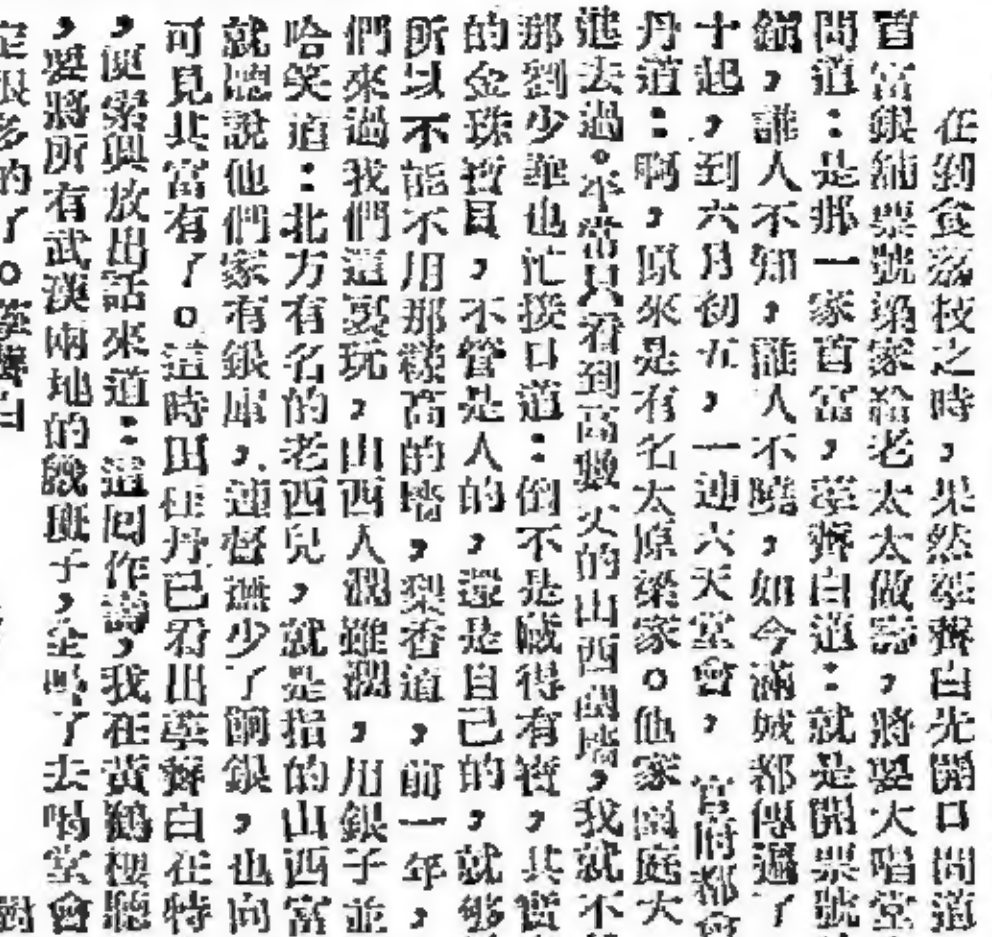 在到食荔枝之時,果然莘齊白先開口問道
首富銀舖票號梁家給老太太做壽,將要大唱堂
問道:是那一家首富,莘齊白道:就是開票號
鎖,誰人不知,誰人不曉,如今滿城都傳遍了
十起,到六月初五,一連六天堂會,官府都會
丹道:啊,原來是有名太原梁家。他家園庭大
進去過。平常只看到高數丈的山西倒牆,我就不
那劉少華也忙接口道:倒不是城得有寶,其實
的金珠寶貝,不管是人的,還是自己的,就够
所以不能不用那樣高的牆,梨香道,前一年,
們來過我們這裏玩,山西人濶雖濶,用銀子並
哈笑道:北方有名的老西兒,就是指的山西富
就聽說他們家有銀庫,連督撫少了餉銀,也向
可見其富有了。這時田在丹已看出莘齊白在特
,便索興放出話來道:這回作壽,我在黃鶴樓聽
,要將所有武漢兩地的戲班子,全喝了去唱堂會
定很多的了。莘齊白